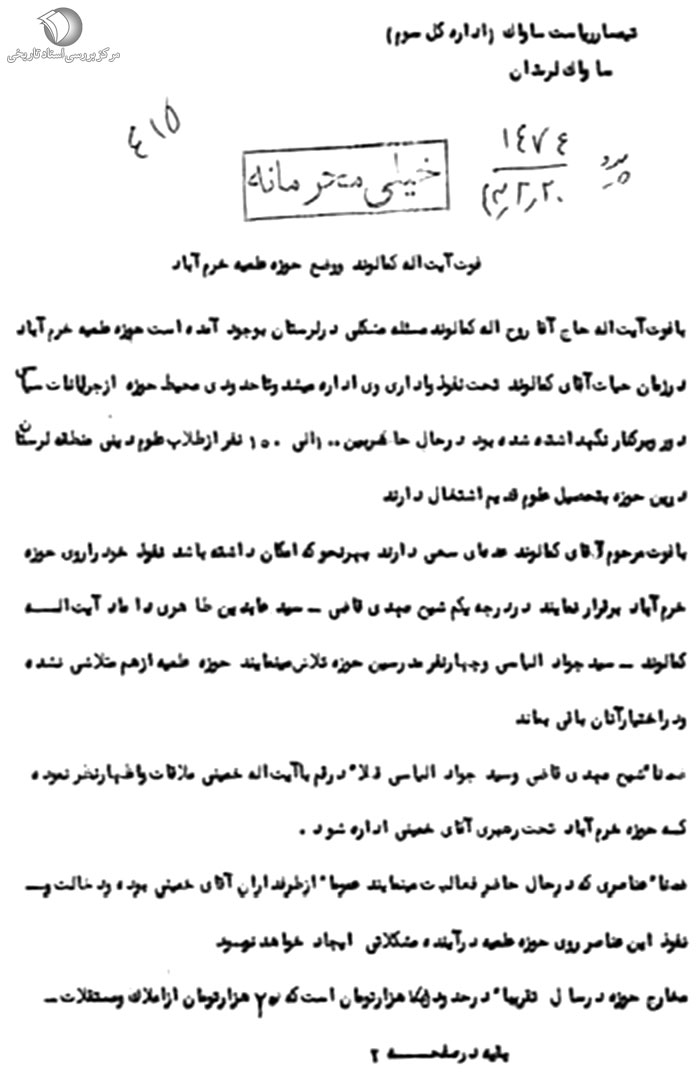 مرکز بررسی اسناد تاریخی
تیمسار ریاست ساواک (اداره کل سوم)
ساواک لرستان
٤١٥
١٤٧٤
خیلی محرمانه
فوت آیت اله کمالوند ووضع حوزه علمیه خرم آباد
با فوت آیت اله حاج آقا روح اله کمالوند مسئله مشکلی در لرستان بوجود آمده است حوزه علمیه خرم آباد
در زمان حیات آقای کمالوند تحت نفوذ واداری وی اداره میشد وتا حدودی محیط حوزه از جریانات سیاسی
دور وبرکنار نگهداشته شده بود در حال حاضر بین ۱۰۰ الی ۱۵۰ نفر از طلاب علوم دینی منطقه لرستان
درین حوزه بتحصیل علوم قدیم اشتغال دارند
با فوت مرحوم آقای کمالوند عده‌ای سعی دارند بهر نحو که امکان داشته باشد نفوذ خود را روی حوزه
خرم آباد برقرار نمایند در درجه یکم شیخ مهدی قاضی ـ سید عابدین طاهری داماد آیت الـــه
کمالوند ـ سید جواد الماسی وچهار نفر مدرسین حوزه تلاش مینمایند حوزه علمیه از هم متلاشی نشده
ودر اختیار آنان باقی بماند
ضمناً شیخ مهدی قاضی وسید جواد الماسی قبلاً در قم با آیت اله خمینی ملاقات واظهار نظر نموده
کـه حوزه خرم آباد تحت رهبری آقای خمینی اداره شود .
ضمناً عناصری که در حال حاضر فعالیت مینمایند عموماً از طرفداران آقای خمینی بوده ودخالت وـ
نفوذ این عناصر روی حوزه علمیه در آینده مشکلاتی ایجاد خواهد نمود
مخارج حوزه در سال تقریباً در حدود هزار تومان است که هزار تومان از املاک ومستغلات ـ
بقیه در صفحـــه ۲